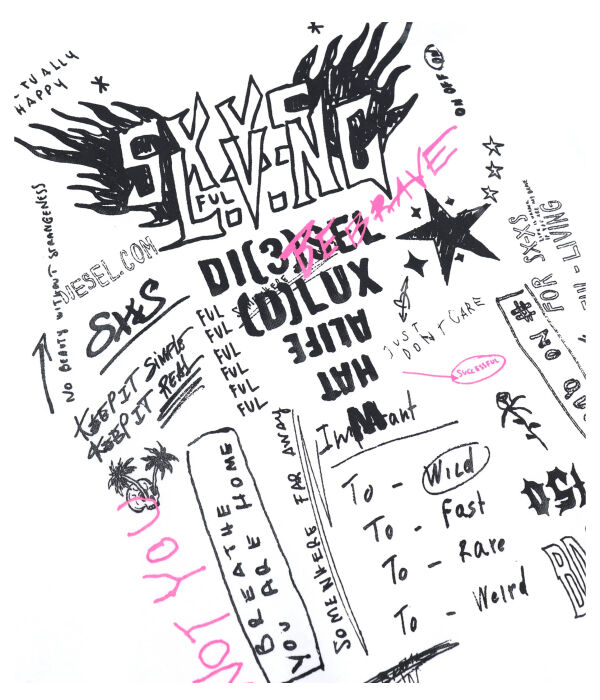 -TUALLY
HAPPY
ON OFF ON
SX-XS
FUL
L.V.NG
BE BRAVE
DI(3)SEL
(D)LUX
ALIFE
HAT
W
NO BEAUTY WITHOUT STRANGENESS
DIESEL.COM
SX-S
FUL
FUL
FUL
FUL
FUL
FUL
KEEP IT SIMPLE
KEEP IT REAL
JUST
DON'T CARE
SUCCESSFUL
FOR SX-XS
-LIVING
ON #
NOT YOU
BREATHE
YOU ARE HOME
SOMEWHERE FAR AWAY
I'm
ant
To - Wild
To - Fast
To - Rare
To - Weird